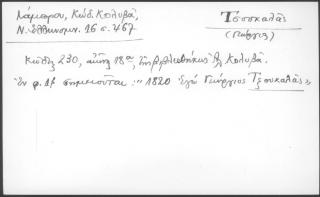 Λάμπρου, Κώδ. Κολυβᾶ,
Ν. Ἑλληνομν. 16 σ. 467
Τσουκαλᾶς
(Γεώργιος)
Κώδιξ 230, αἰῶν 18ᾳ, Βιβλιοθήκης Ἀλ. Κολυβᾶ.
Ἐν φ. 1β σημειοῦται: "1820 Ἐγὼ Γεώργιος Τζουκαλᾶς"